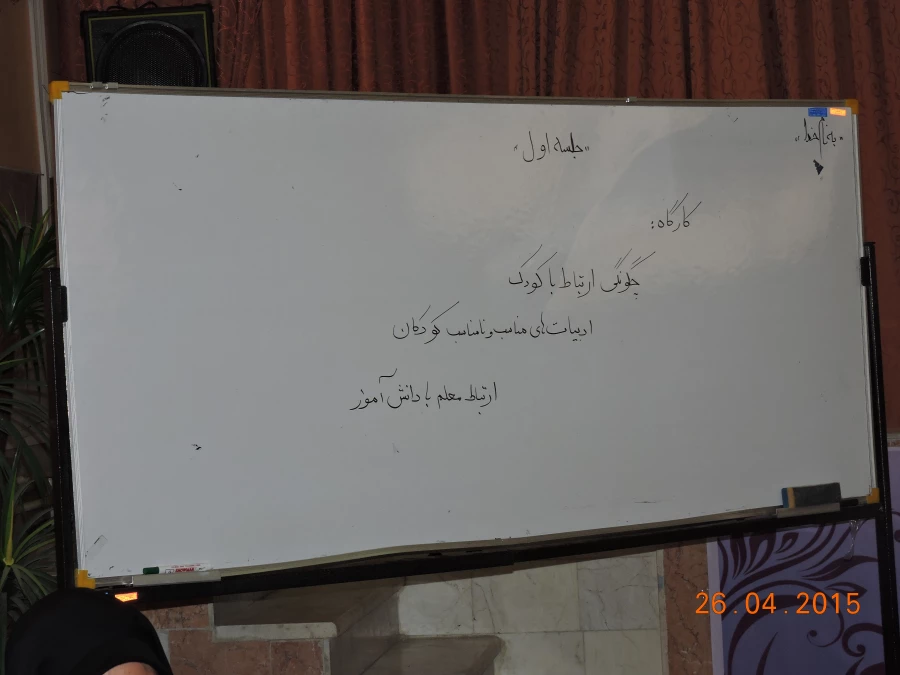 «به نام خدا»
«جلسه اول»
کارگاه:
چگونگی ارتباط با کودک
ادبیات‌های مناسب و نامناسب کودکان
ارتباط معلم با دانش آموز
26.04.2015